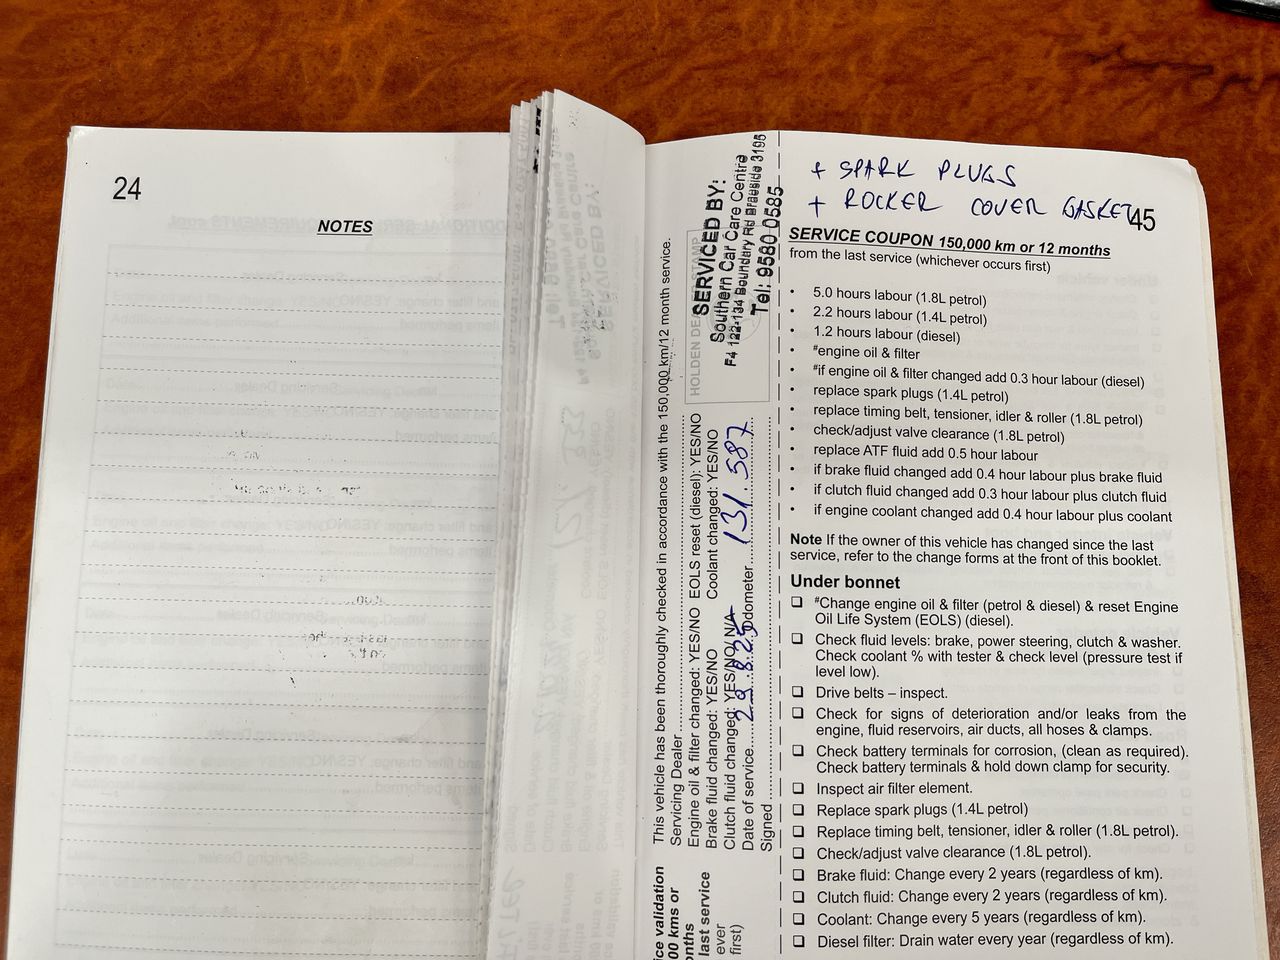 24
NOTES
+ SPARK PLUGS
+ ROCKER COVER GASKET
45
SERVICE COUPON 150,000 km or 12 months
from the last service (whichever occurs first)
• 5.0 hours labour (1.8L petrol)
• 2.2 hours labour (1.4L petrol)
• 1.2 hours labour (diesel)
• #engine oil & filter
• #if engine oil & filter changed add 0.3 hour labour (diesel)
• replace spark plugs (1.4L petrol)
• replace timing belt, tensioner, idler & roller (1.8L petrol)
• check/adjust valve clearance (1.8L petrol)
• replace ATF fluid add 0.5 hour labour
• if brake fluid changed add 0.4 hour labour plus brake fluid
• if clutch fluid changed add 0.3 hour labour plus clutch fluid
• if engine coolant changed add 0.4 hour labour plus coolant
Note If the owner of this vehicle has changed since the last
service, refer to the change forms at the front of this booklet.
Under bonnet
❑ #Change engine oil & filter (petrol & diesel) & reset Engine
Oil Life System (EOLS) (diesel).
❑ Check fluid levels: brake, power steering, clutch & washer.
Check coolant % with tester & check level (pressure test if
level low).
❑ Drive belts – inspect.
❑ Check for signs of deterioration and/or leaks from the
engine, fluid reservoirs, air ducts, all hoses & clamps.
❑ Check battery terminals for corrosion, (clean as required).
Check battery terminals & hold down clamp for security.
❑ Inspect air filter element.
❑ Replace spark plugs (1.4L petrol)
❑ Replace timing belt, tensioner, idler & roller (1.8L petrol).
❑ Check/adjust valve clearance (1.8L petrol).
❑ Brake fluid: Change every 2 years (regardless of km).
❑ Clutch fluid: Change every 2 years (regardless of km).
❑ Coolant: Change every 5 years (regardless of km).
❑ Diesel filter: Drain water every year (regardless of km).
This vehicle has been thoroughly checked in accordance with the 150,000 km/12 month service.
Servicing Dealer
HOLDEN
SERVICED BY:
Southern Car Care Centre
F4 122-134 Boundary Rd Braeside 3195
Tel: 9580 0585
Engine oil & filter changed: YES/NO EOLS reset (diesel): YES/NO
Brake fluid changed: YES/NO Coolant changed: YES/NO
Clutch fluid changed: YES/NO/N/A
Date of service 29.8.25 Odometer 131.587
Signed
00 kms or
last service
ever
first)